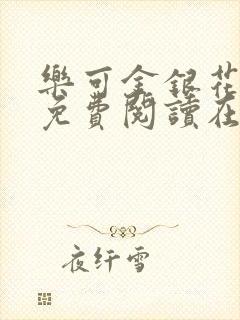 樂可金銀花
免費閱讀在
夜纤雪